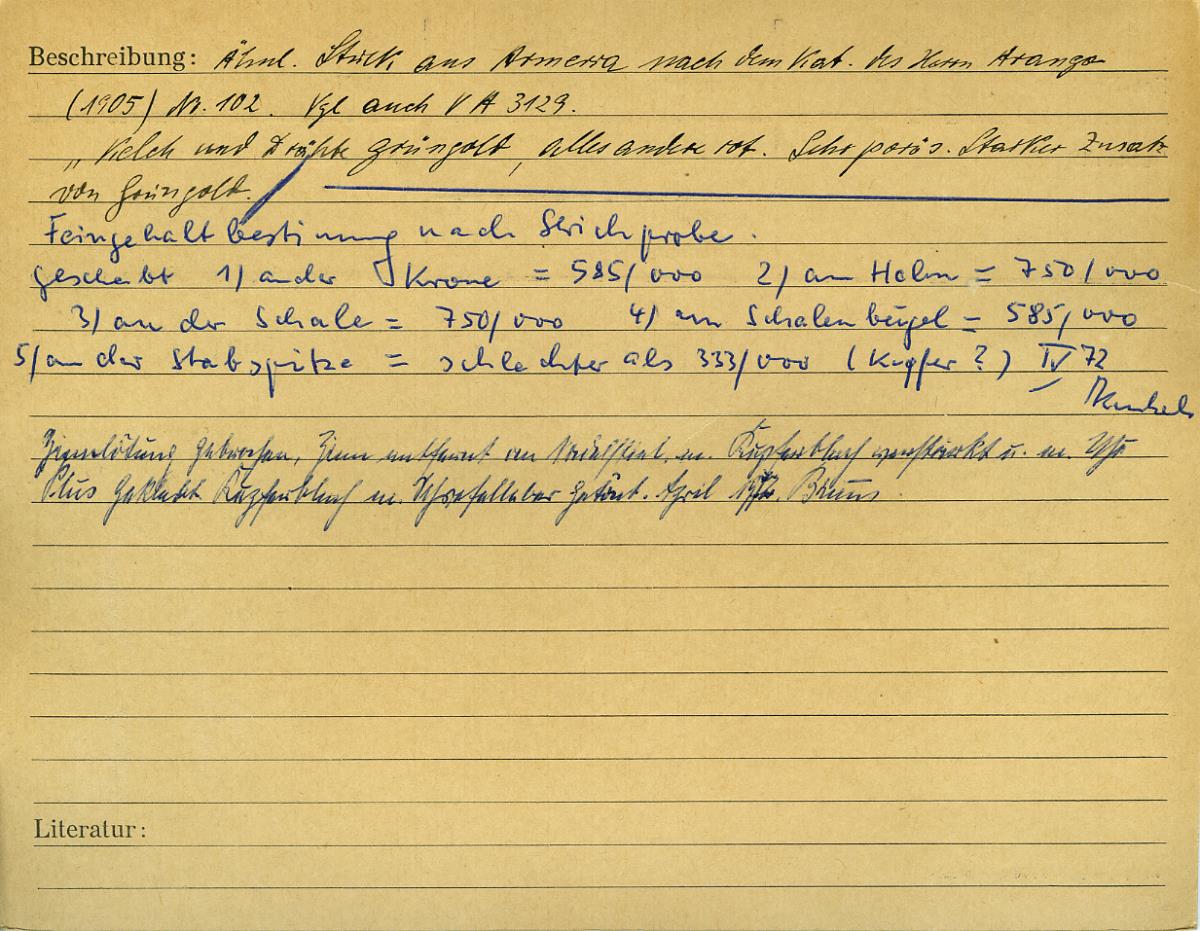 Beschreibung: Ähnl. Stück aus Armenia nach dem Kat. des Herrn Arango
(1905) Nr. 102. Vgl auch V A 3129.
„ Kelch und Drähte grüngolt, alles andere rot. Sehr porös. Starker Zusatz
von Grüngolt.
Feingehaltbestimung nach Strichprobe.
geschabt 1) an der Krone = 585/000 2) am Helm = 750/000
3) an der Schale = 750/000 4) am Schalenbügel = 585/000
5) an der Stabspitze = schlechter als 333/000 (Kupfer?) IV 72
Zinnlötung gebrochen, Zinn entfernt m. Kupferblech verstärkt u. m. Uhu
Plus geklebt. Kupferblech m. Schwefelleber getönt. April
Literatur: